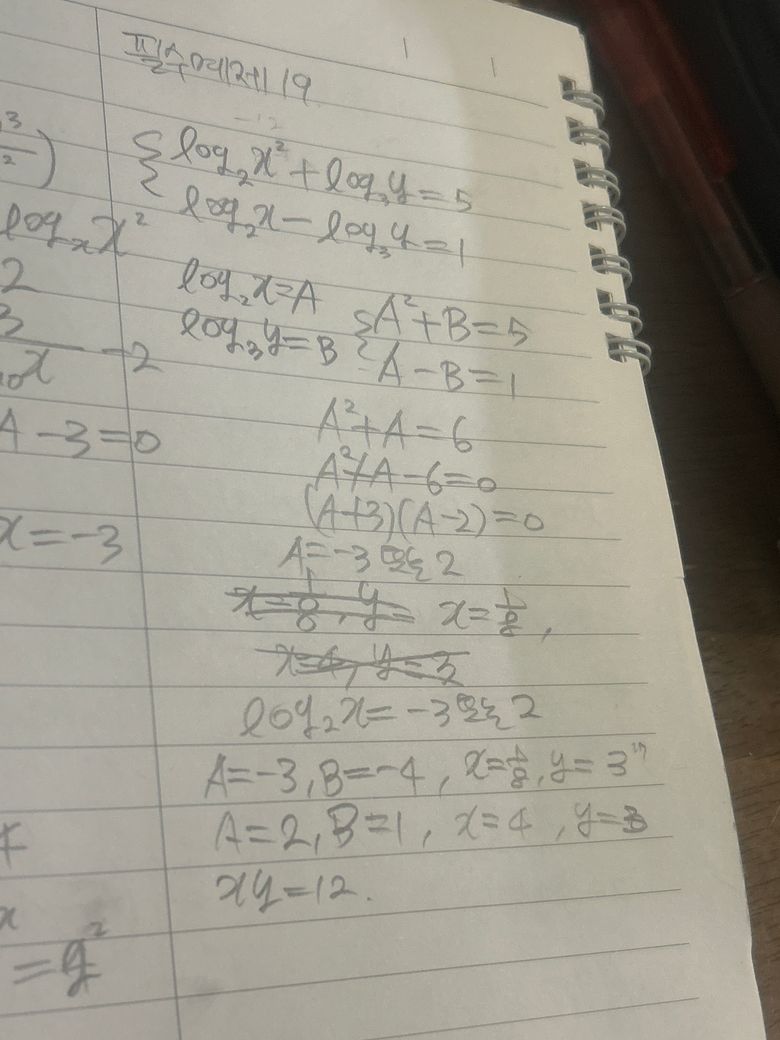 필수예제 19
{ log₂x² + log₃y = 5
log₂x - log₃y = 1
log₂x = A
log₃y = B
{ A² + B = 5
A - B = 1
A² + A = 6
A² + A - 6 = 0
(A+3)(A-2) = 0
A = -3 또는 2
x = 1/8, y = x = 1/8,
x = 4, y = 3
log₂x = -3 또는 2
A = -3, B = -4, x = 1/8, y = 3
A = 2, B = 1, x = 4, y = 3
xy = 12.
3/2)
x²
2
3
x - 2
A - 3 = 0
x = -3
x
= y²